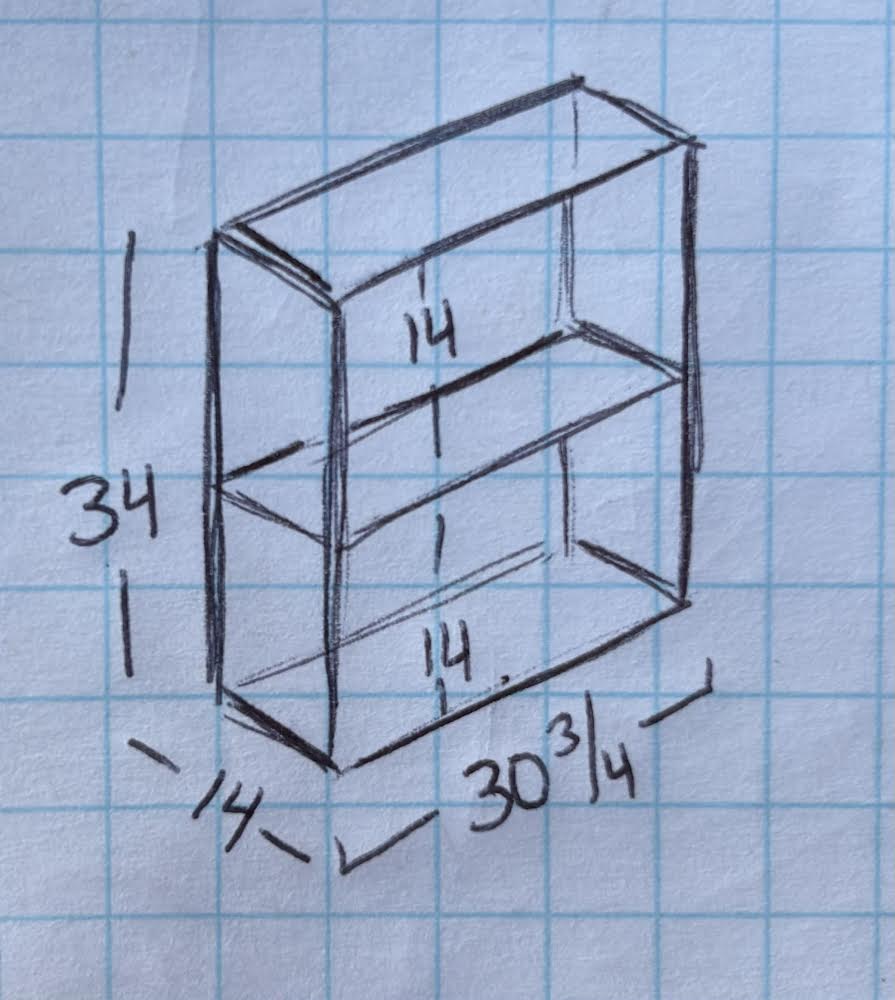 14
34
14
30 3/4
14